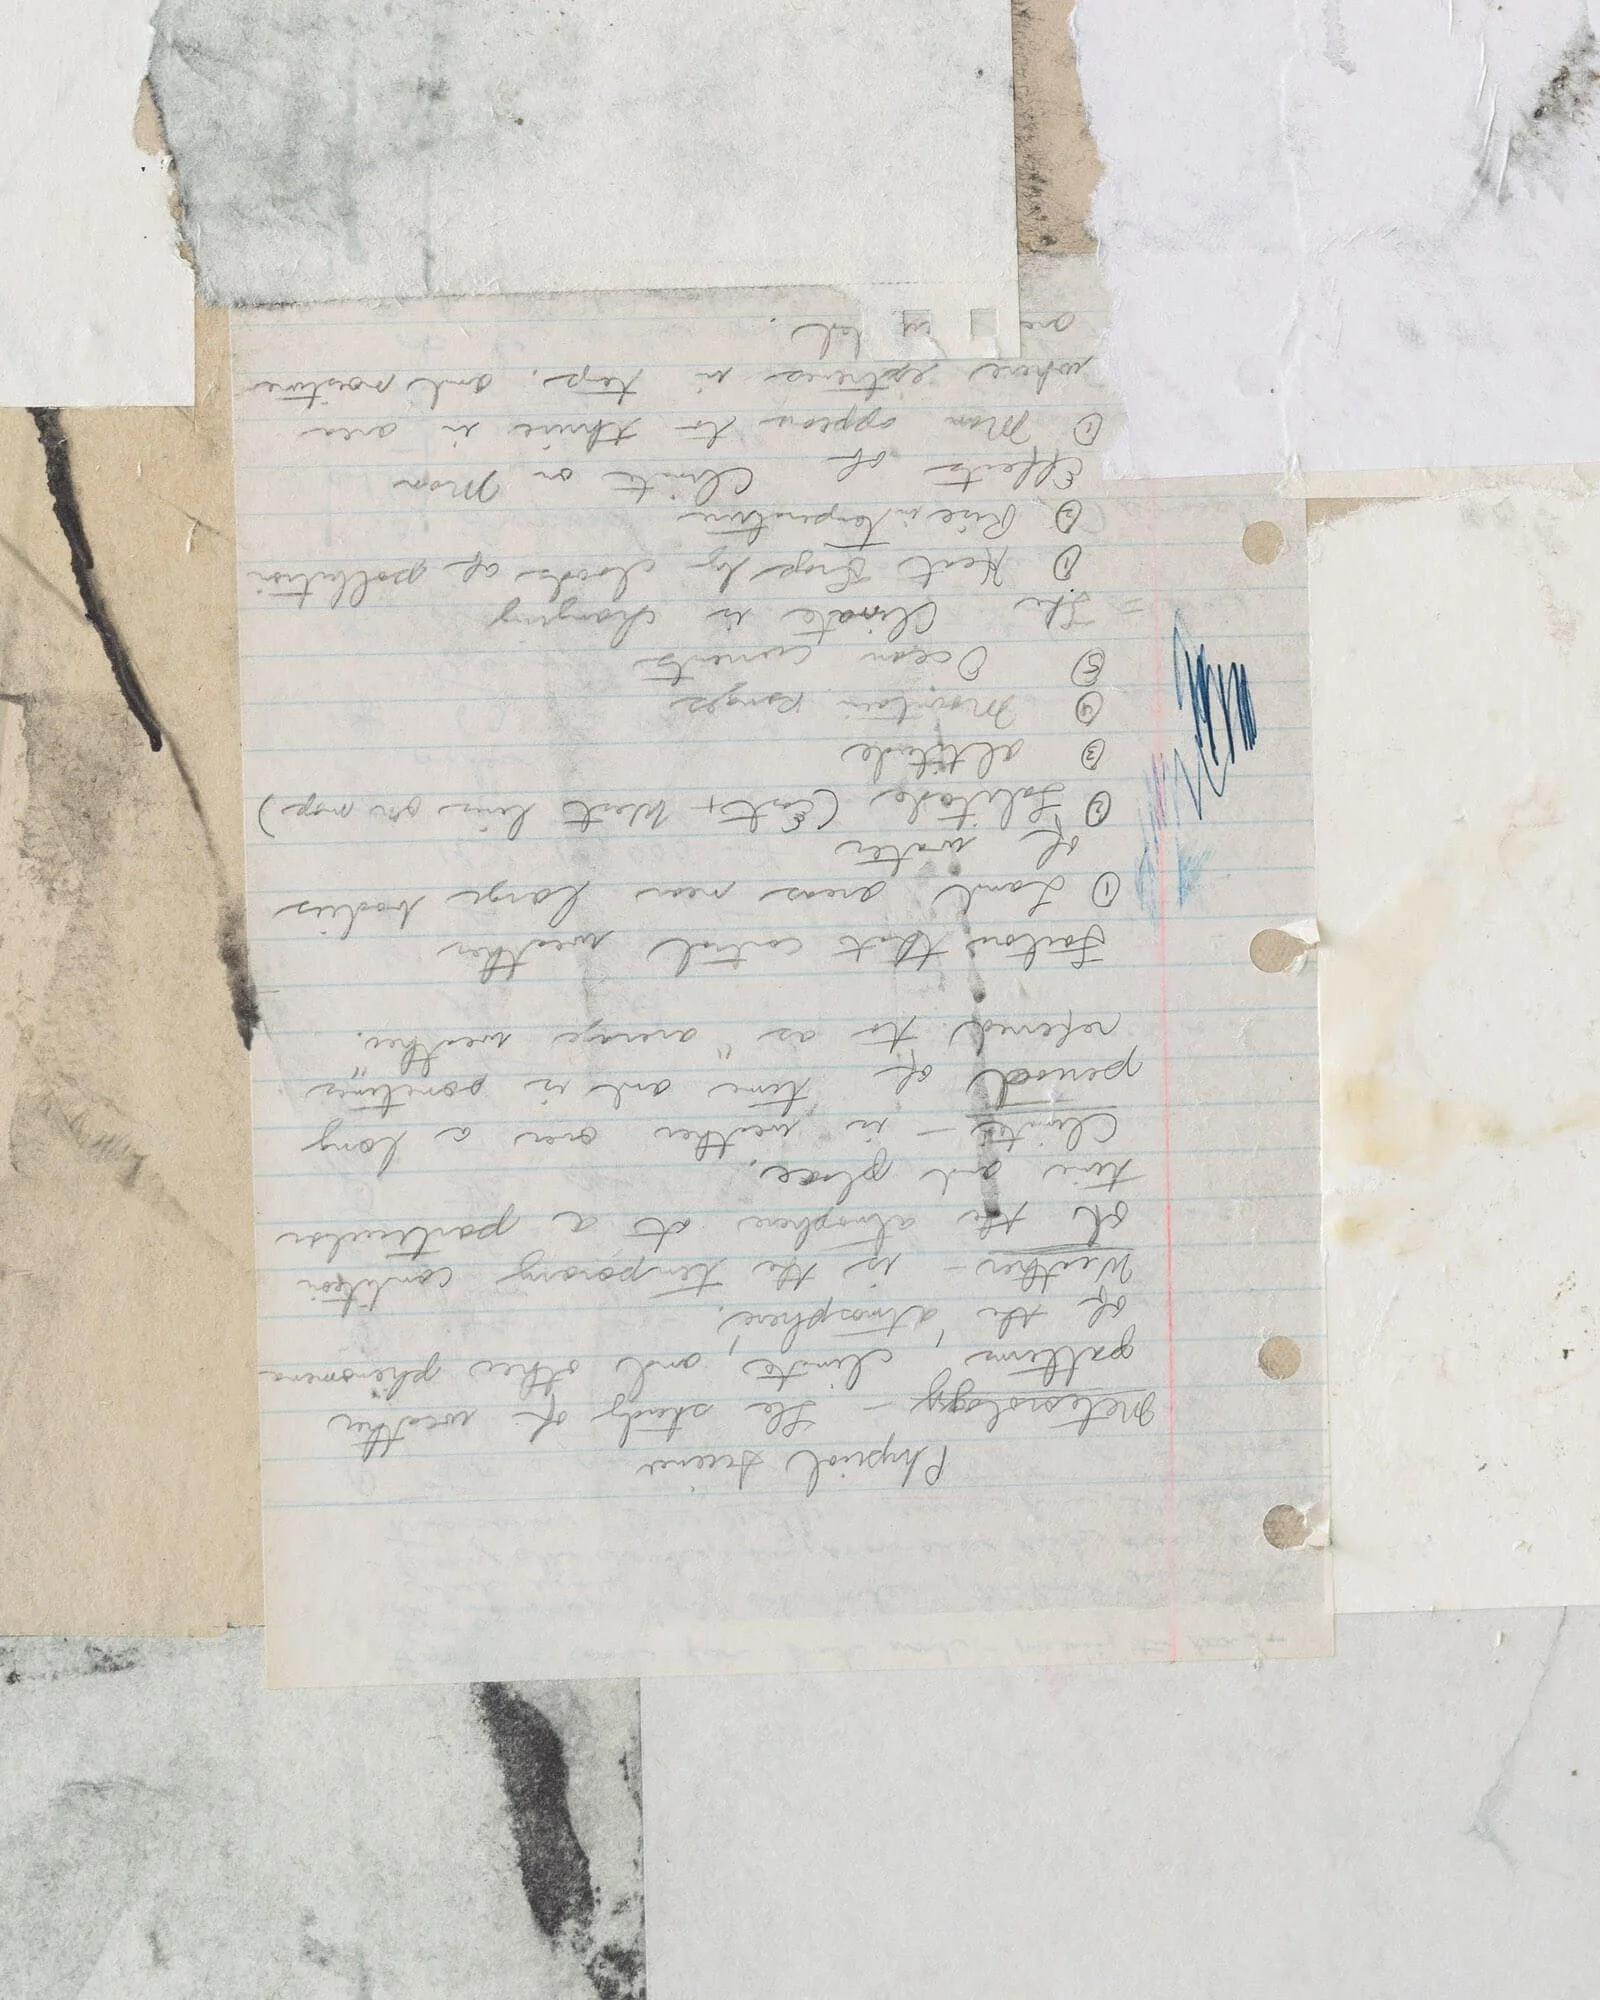 Physical Science
Meteorology - The study of weather
patterns, climate, and other phenomena
of the atmosphere.
Weather - is the temporary condition
of the atmosphere at a particular
time and place.
Climate - is weather over a long
period of time and is sometimes
referred to as "average weather."
Factors that control weather
① Land areas near large bodies
of water
② Latitude (East + West lines on map)
③ altitude
④ Mountain Ranges
⑤ Ocean currents
= The Climate is changing
① Heat Trap by clouds of pollution
② Rise in temperature
Effects of Climate on Man
① Man appears to thrive in area
where extremes in temp. and moisture
are